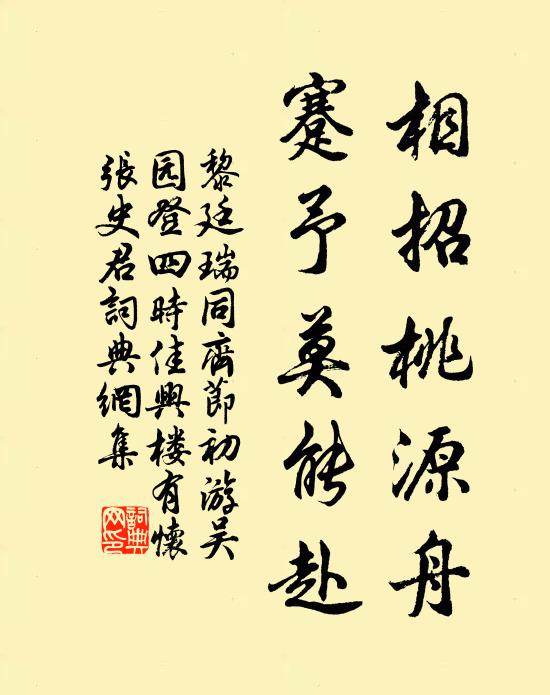 相招桃源舟
蹇予莫能赴
黎廷瑞同齊節初游吴
园登四時佳興楼有懷
張史君詞典網集
詞典網印